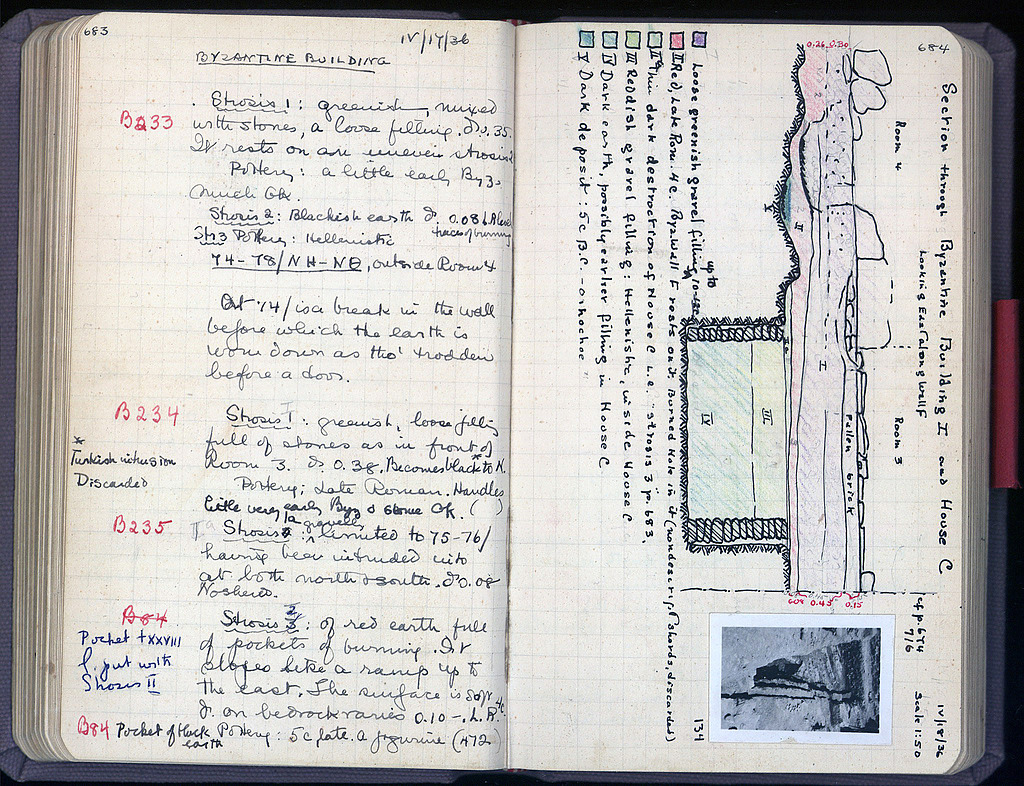 683
IV/17/36
BYZANTINE BUILDING
B233
Strosis 1: greenish, mixed
with stones, a loose filling. d. 0.35.
It rests on an uneven strosis 2
Pottery: a little early Byz.
much Gk.
Strosis 2: Blackish earth d. 0.08 L.R. level
traces of burning
Str 3 Pottery: Hellenistic
74-78/NH-NΘ, outside Room 4
At 74/ is a break in the wall
before which the earth is
worn down as tho' trodden
before a door.
B234
Strosis 1: greenish, loose filling
full of stones as in front of
Room 3. d. 0.38. Becomes black* to N.
* Turkish intrusion
Discarded
Pottery: Late Roman. Handles
little very early Byz & some Gk. ( )
B235
Strosis 2: gravelly limited to 75-76/
having been intruded into
at both north & south. d. 0.08
No sherds.
B84
Pocket + XXVIII
put with
Strosis II
Strosis 3: of red earth full
2
of pockets of burning. It
slopes like a ramp up to
the east. The surface is soft
d. on bedrock varies 0.10 -. L.R. 4c.
B84 Pocket of black earth
Pottery: 5c late. a figurine (472)
684
Section through Byzantine Building I and House C
Looking East along Wall F
cf p. 674
716
IV/18/36
Scale 1:50
Room 4
Room 3
0.26
0.30
I
II
III
IV
V
Fallen brick
0.45
0.15
Loose greenish gravel filling up to
II Red, Late Rom. 4c. Byz wall F rests on it. Burned Hole in it (nondescrip. sherds, discarded)
IIa Thin dark destruction of House C i.e. strosis 3 p. 683,
III Reddish gravel filling: Hellenistic, inside House C
IV Dark earth, possibly earlier filling in House C
V Dark deposit: 5c B.C. - oinochoe
134